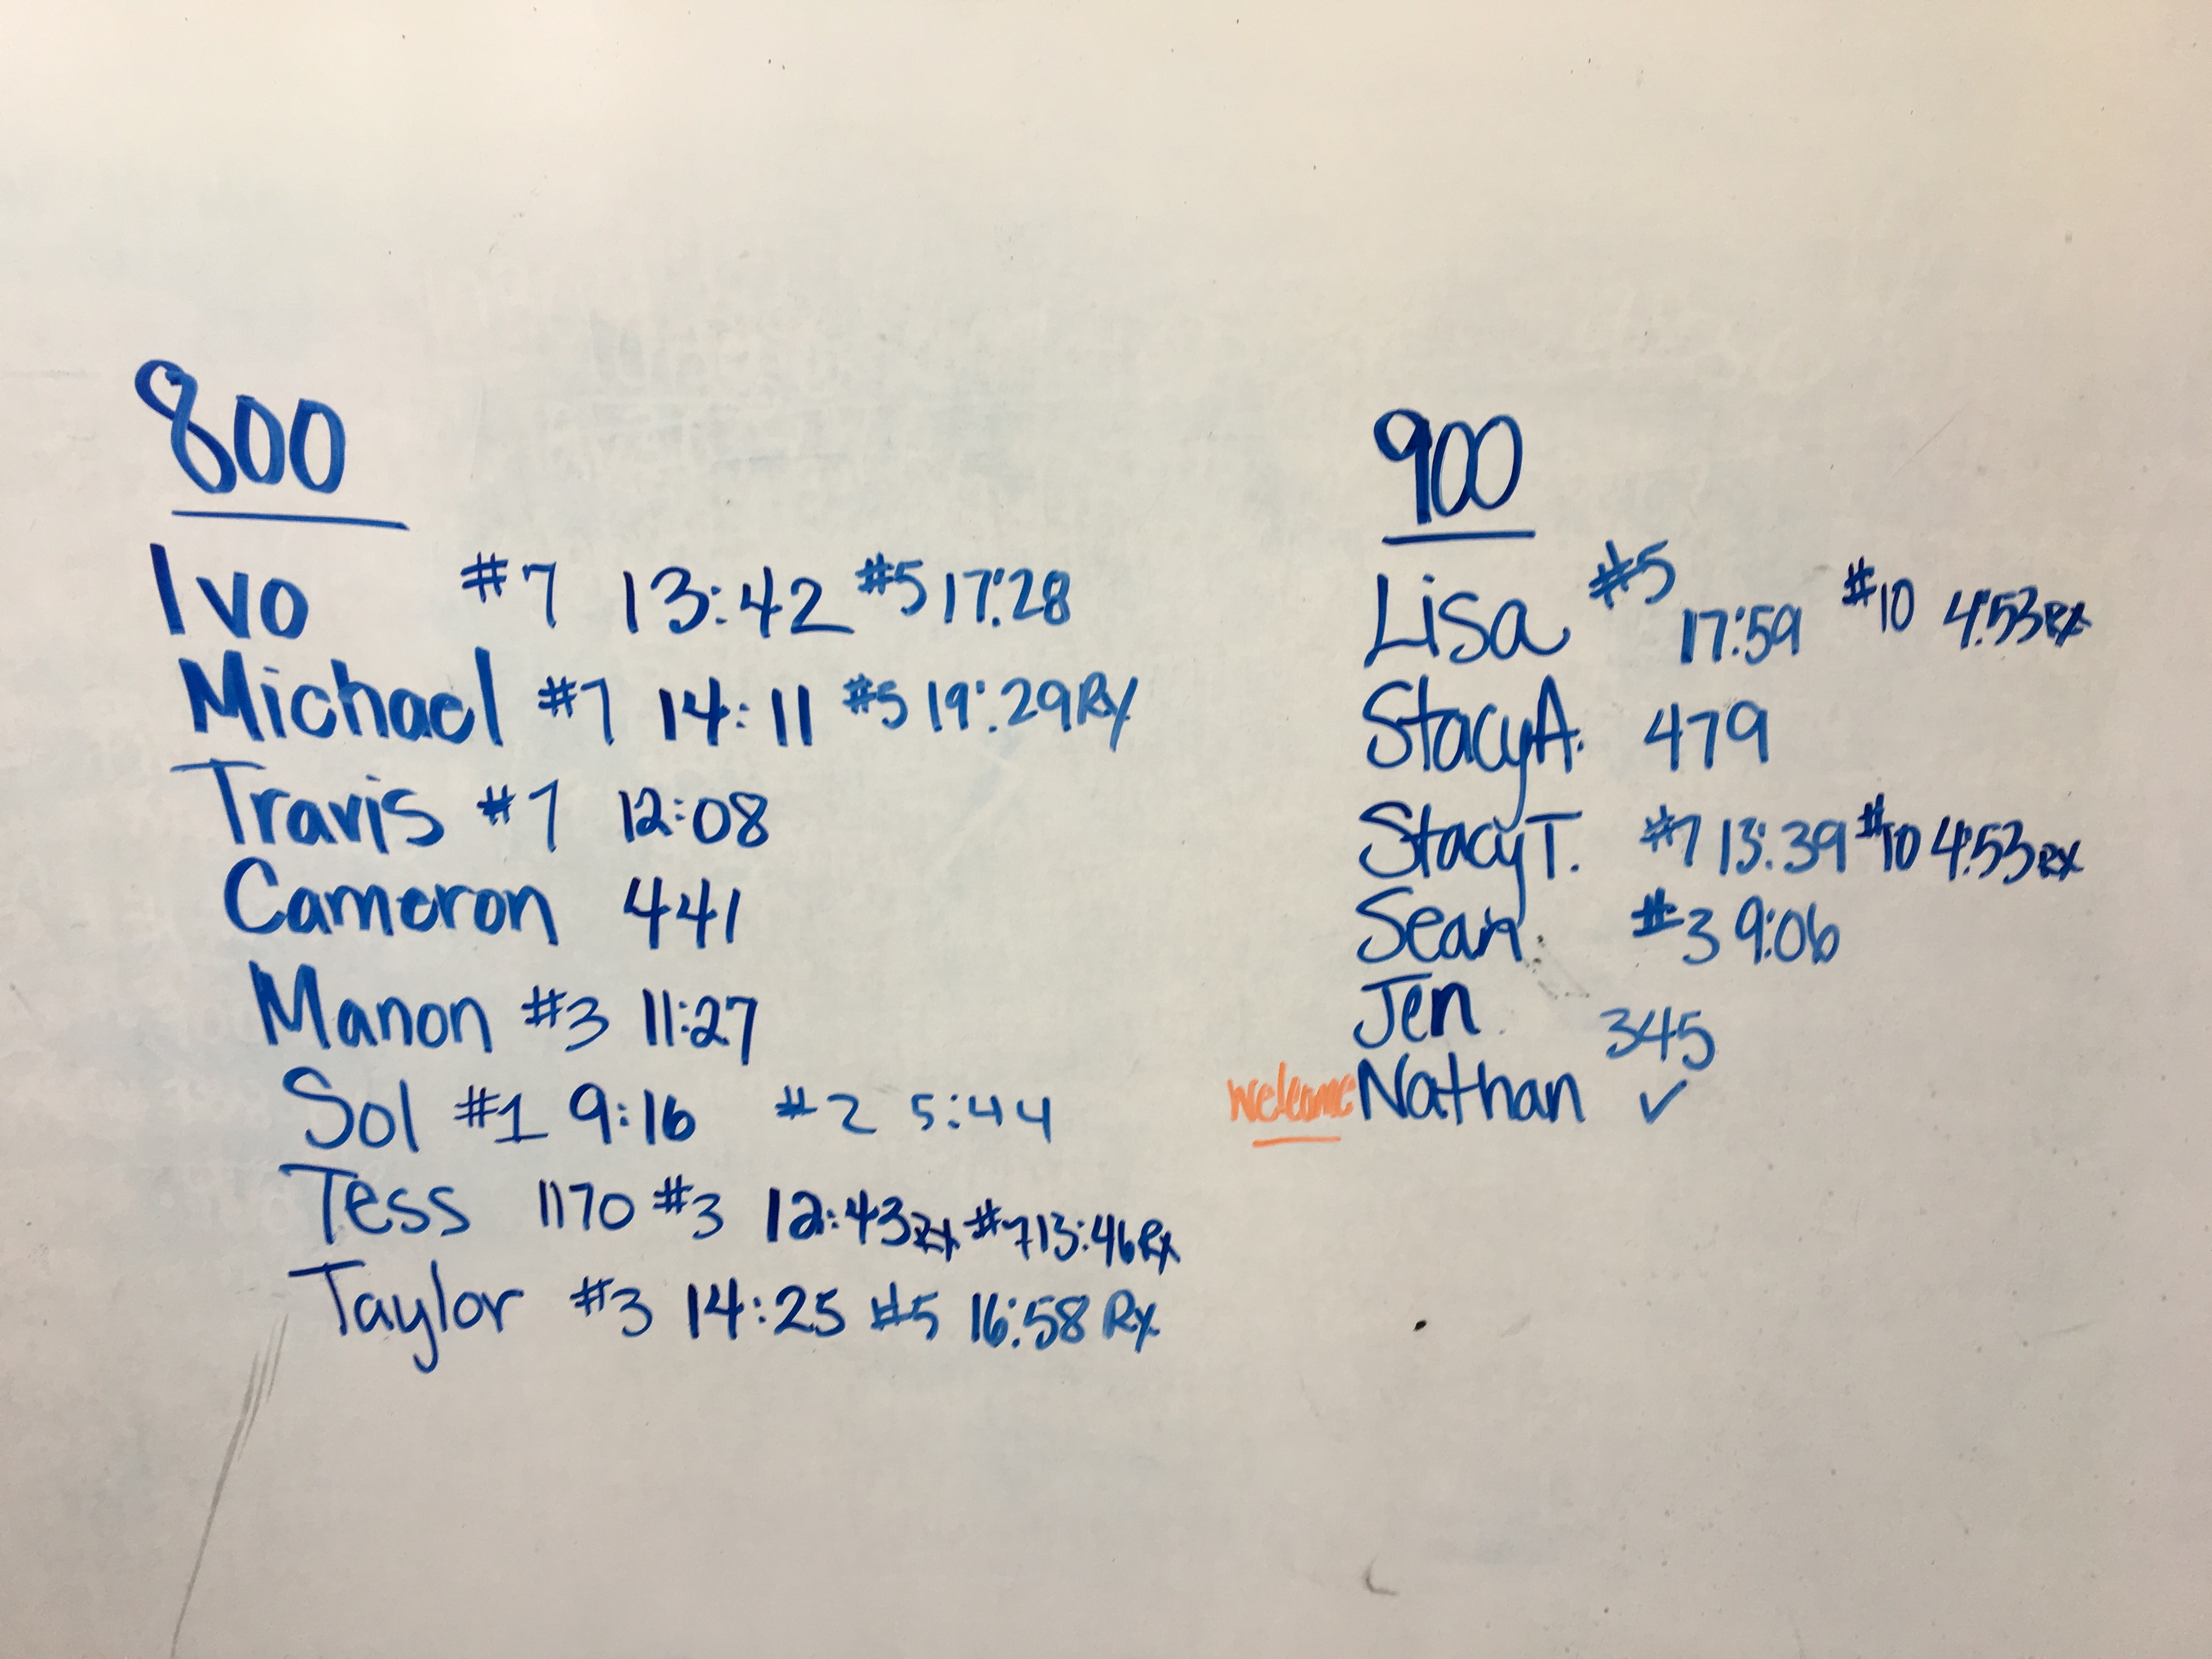 800
Ivo #7 13:42 #5 17:28
Michael #7 14:11 #5 19:29 Rx
Travis #7 12:08
Cameron 441
Manon #3 11:27
Sol #1 9:16 #2 5:44
Tess 1170 #3 12:43 Rx #7 13:46 Rx
Taylor #3 14:25 #5 16:58 Rx
900
Lisa #5 17:59 #10 4:53 Rx
Stacy A. 479
Stacy T. #7 13:39 #10 4:53 Rx
Sean #3 9:06
Jen 345
Welcome Nathan ✓